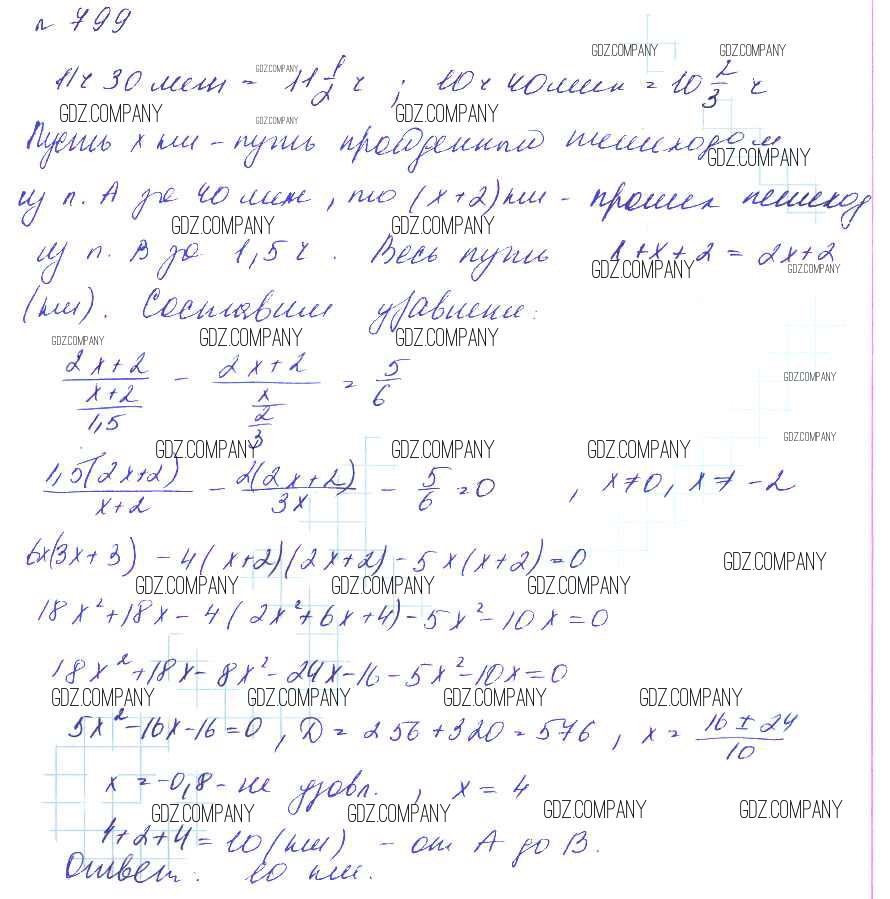 № 799
GDZ.COMPANY GDZ.COMPANY
11ч 30 мин = 11 1/2 ч ; 10ч 40мин = 10 2/3 ч
GDZ.COMPANY
GDZ.COMPANY GDZ.COMPANY GDZ.COMPANY
Пусть x км – путь пройденный пешеходом
GDZ.COMPANY
из п. A за 40 мин, то (x+2) км – прошел пешеход
GDZ.COMPANY GDZ.COMPANY
из п. B за 1,5 ч. Весь путь x+x+2 = 2x+2
GDZ.COMPANY GDZ.COMPANY
(км). Составим уравнение:
GDZ.COMPANY GDZ.COMPANY GDZ.COMPANY
(2x+2)/((x+2)/1,5) – (2x+2)/(x/(2/3)) = 5/6
GDZ.COMPANY
GDZ.COMPANY GDZ.COMPANY GDZ.COMPANY GDZ.COMPANY
1,5(2x+2)/(x+2) – 2(2x+2)/3x – 5/6 = 0 , x≠0, x≠ -2
6x(3x+3) – 4(x+2)(2x+2) – 5x(x+2) = 0
GDZ.COMPANY
GDZ.COMPANY GDZ.COMPANY GDZ.COMPANY
18x²+18x – 4(2x²+6x+4) – 5x² – 10x = 0
18x²+18x – 8x² – 24x – 16 – 5x² – 10x = 0
GDZ.COMPANY GDZ.COMPANY GDZ.COMPANY GDZ.COMPANY
5x² – 16x – 16 = 0 , D = 256+320 = 576 , x = (16 ± 24)/10
x = -0,8 – не удовл. , x = 4
GDZ.COMPANY GDZ.COMPANY GDZ.COMPANY GDZ.COMPANY
4+2+4 = 10 (км) – от A до B.
Ответ: 10 км.